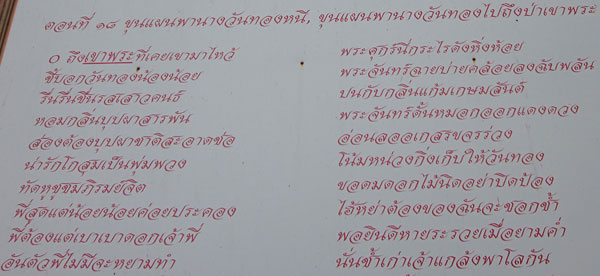 ตอนที่ ๑๘ ขุนแผนพานางวันทองหนี, ขุนแผนพานางวันทองไปถึงป่าเขาพระ
๐ ถึงเขาพระที่เคยเข้ามาไหว้
ชี้บอกวันทองน้องน้อย
รื่นรื่นชื่นรสเสาวคนธ์
หอมกลิ่นบุปผาสารพัน
สองต้องบุปผาชาติสะอาดช่อ
น่ารักโกสุมเป็นพุ่มพวง
ทัดหูชูชมภิรมย์จิต
พี่สุดแต่น้อยน้อยค่อยประคอง
พี่ต้องแต่เบาเบาดอกเจ้าพี่
อันตัวพี่ไม่มีจะหยามทำ
พระศุกร์นี่กระไรดังหิ่งห้อย
พระจันทร์ฉายบ่ายคล้อยลงฉับพลัน
ปนกับกลิ่นแก้มเกษมสันต์
พระจันทร์ดั้นหมอกออกแดงดวง
อ่อนลออเกสรขจรร่วง
โน้มหน่วงกิ่งเก็บให้วันทอง
ขอดมดอกไม้นิดอย่าปิดป้อง
ไฮ้หย่าต้องของฉันจะชอกช้ำ
พอยินดีหายระรวยเมื่อยามค่ำ
นั่นช้ำเก่าเจ้าแกล้งพาโลกัน